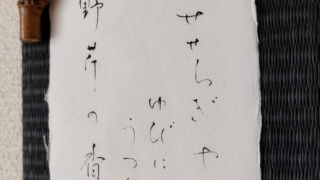 せせらぎや
ゆびに
うつ
野芹の香